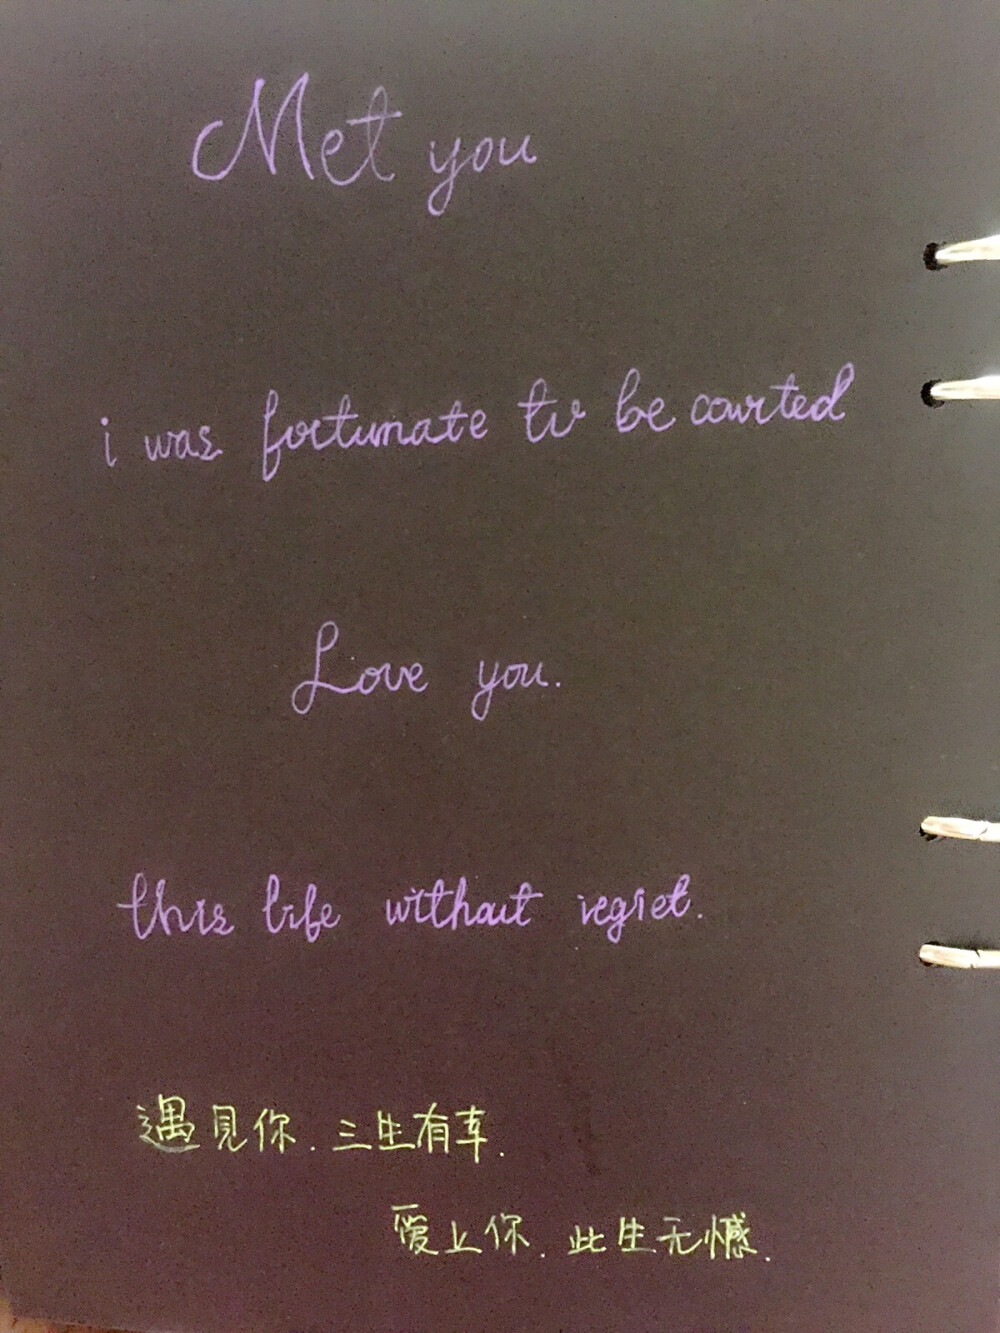 Met you
i was fortunate to be courted
Love you.
this life without regret.
遇見你.三生有幸.
爱上你.此生无憾.